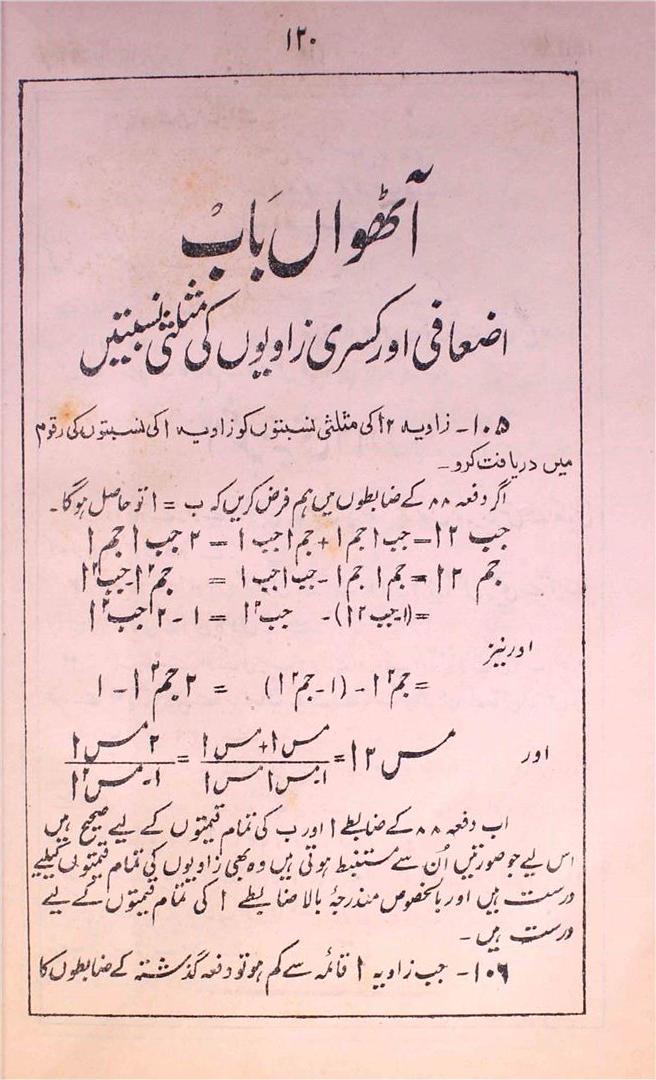 ۱۲۰
آٹھواں بَابْ
اضعافی اور کسری زاویوں کی مثلثی نسبتیں
۱۰۵۔ زاویہ ۲ا کی مثلثی نسبتوں کو زاویہ ا کی نسبتوں کی رقوم
میں دریافت کرو۔
اگر دفعہ ۸۸ کے ضابطوں میں ہم فرض کریں کہ ب = ا تو حاصل ہوگا۔
جب ۲ا = جب ا جم ا + جم ا جب ا = ۲ جب ا جم ا
جم ۲ا = جم ا جم ا - جب ا جب ا = جم۲ا - جب۲ا
= (۱ - جب۲ا) - جب۲ا = ۱ - ۲ جب۲ا
اور نیز
= جم۲ا - (۱ - جم۲ا) = ۲ جم۲ا - ۱
اور مس ۲ا = مس ا + مس ا / ۱ - مس ا مس ا = ۲ مس ا / ۱ - مس۲ا
اب دفعہ ۸۸ کے ضابطے ا اور ب کی تمام قیمتوں کے لیے صحیح ہیں
اس لیے جو صورتیں اُن سے مستنبط ہوتی ہیں وہ بھی زاویوں کی تمام قیمتوں کیلیے
درست ہیں اور بالخصوص مندرجۂ بالا ضابطے ا کی تمام قیمتوں کے لیے
درست ہیں۔
۱۰۶۔ جب زاویہ ا قائمہ سے کم ہو تو دفعہ گذشتہ کے ضابطوں کا